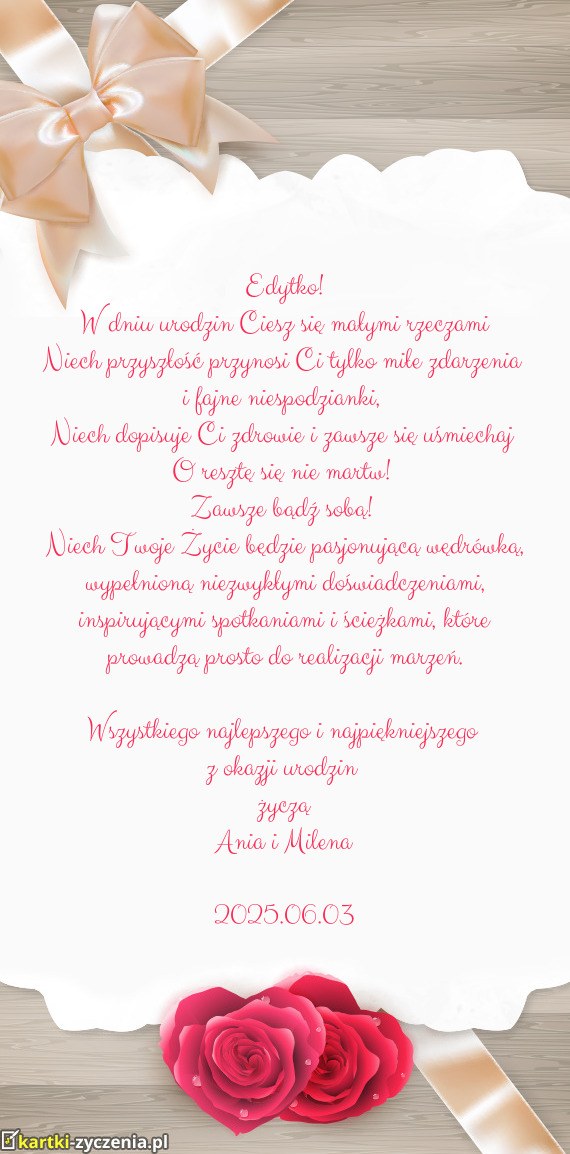 Edytko!
W dniu urodzin Ciesz się małymi rzeczami
Niech przyszłość przynosi Ci tylko miłe zdarzenia
i fajne niespodzianki,
Niech dopisuje Ci zdrowie i zawsze się uśmiechaj
O resztę się nie martw!
Zawsze bądź sobą!
Niech Twoje Życie będzie pasjonującą wędrówką,
wypełnioną niezwykłymi doświadczeniami,
inspirującymi spotkaniami i ścieżkami, które
prowadzą prosto do realizacji marzeń.
Wszystkiego najlepszego i najpiękniejszego
z okazji urodzin
życzą
Ania i Milena
2025.06.03
kartki-zyczenia.pl